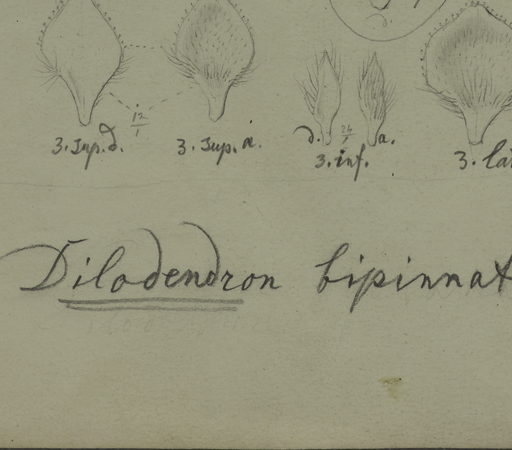 12/1
3. sup. d.
3. sup. a.
d. 24/1 a.
3. inf.
3. la
Dilodendron bipinnat